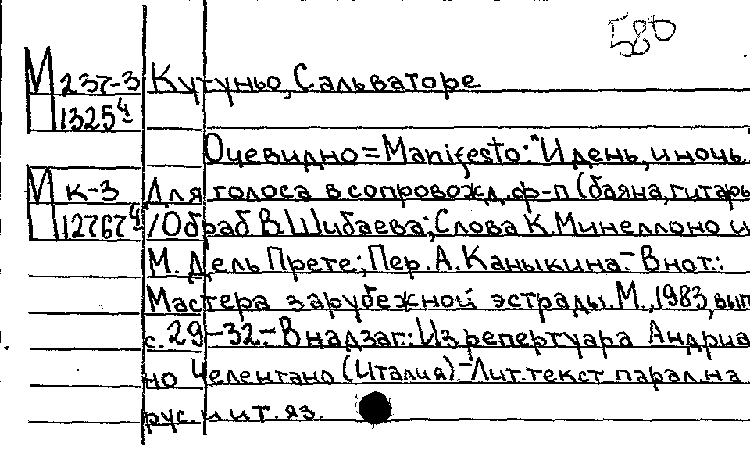 580
М 237-3 Кутуньо, Сальваторе
1325⁴
Очевидно = Manifesto: "И день, и ночь
М к-3 Для голоса в сопровожд. ф-п (баяна, гитары
12767⁴ /Обраб В. Шибаева; Слова К. Минеллоно и
М. Дель Прете; Пер. А. Каныкина.- В нот.:
Мастера зарубежной эстрады. М., 1983, вып
с. 29-32.- В надзаг.: Из репертуара Андриа
но Челентано (Италия)- Лит. текст парал. на
рус. и ит. яз.